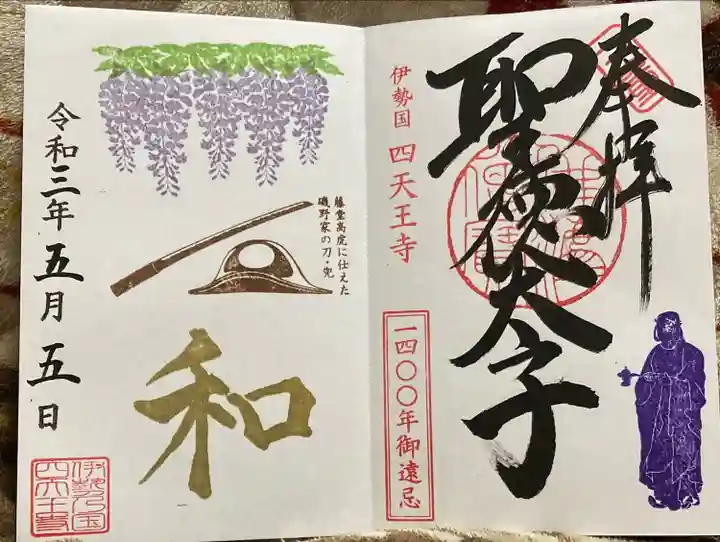 奉拝
聖徳太子
伊勢国 四天王寺
一四〇〇年御遠忌
藤堂高虎に仕えた
磯野家の刀・兜
和
令和三年五月五日
伊勢乃国
四天王寺